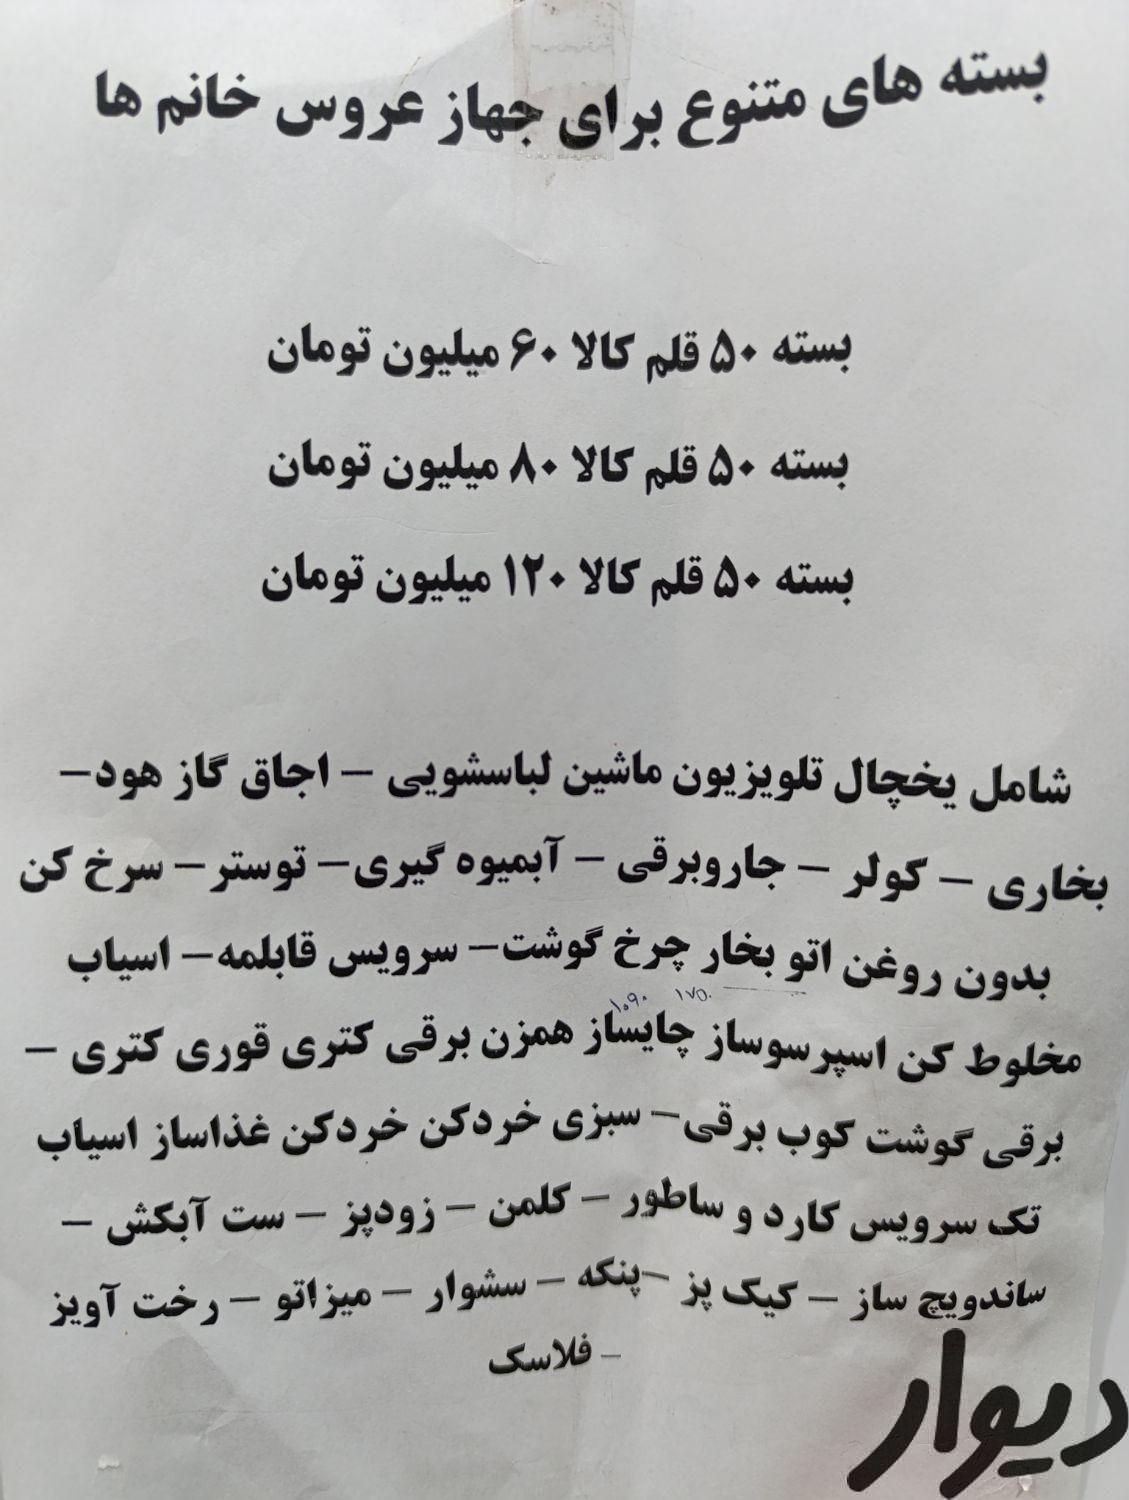 بسته های متنوع برای جهاز عروس خانم ها
بسته ۵۰ قلم کالا ۶۰ میلیون تومان
بسته ۵۰ قلم کالا ۸۰ میلیون تومان
بسته ۵۰ قلم کالا ۱۲۰ میلیون تومان
شامل یخچال تلویزیون ماشین لباسشویی – اجاق گاز هود–
بخاری – کولر – جاروبرقی – آبمیوه گیری– توستر – سرخ کن
بدون روغن اتو بخار چرخ گوشت– سرویس قابلمه– اسیاب
۱۰۹۰ ۱۷۵۰
مخلوط کن اسپرسوساز چایساز همزن برقی کتری قوری کتری –
برقی گوشت کوب برقی– سبزی خردکن خردکن غذاساز اسیاب
تک سرویس کارد و ساطور – کلمن – زودپز – ست آبکش –
ساندویچ ساز – کیک پز –پنکه – سشوار – میزاتو – رخت آویز
– فلاسک
دیوار